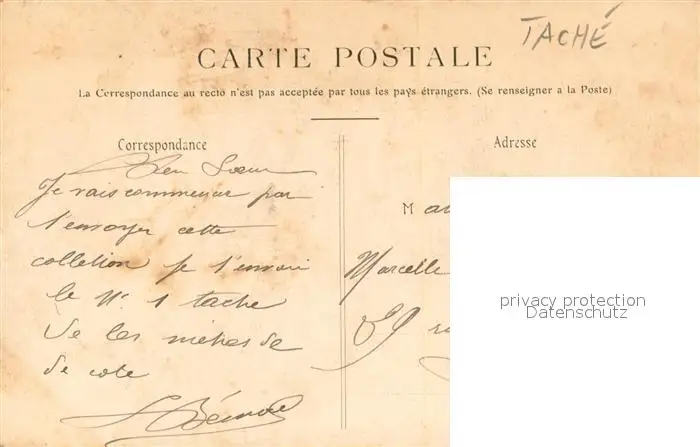 TACHÉ
CARTE POSTALE
La Correspondance au recto n'est pas acceptée par tous les pays étrangers. (Se renseigner a la Poste)
Correspondance
Adresse
Sœur
Je vais commencer par
t'envoyer cette
colletion je t'envoi
le N° 1 tache
de les mettre de
de cote
M
Marcelle
59
privacy protection
Datenschutz